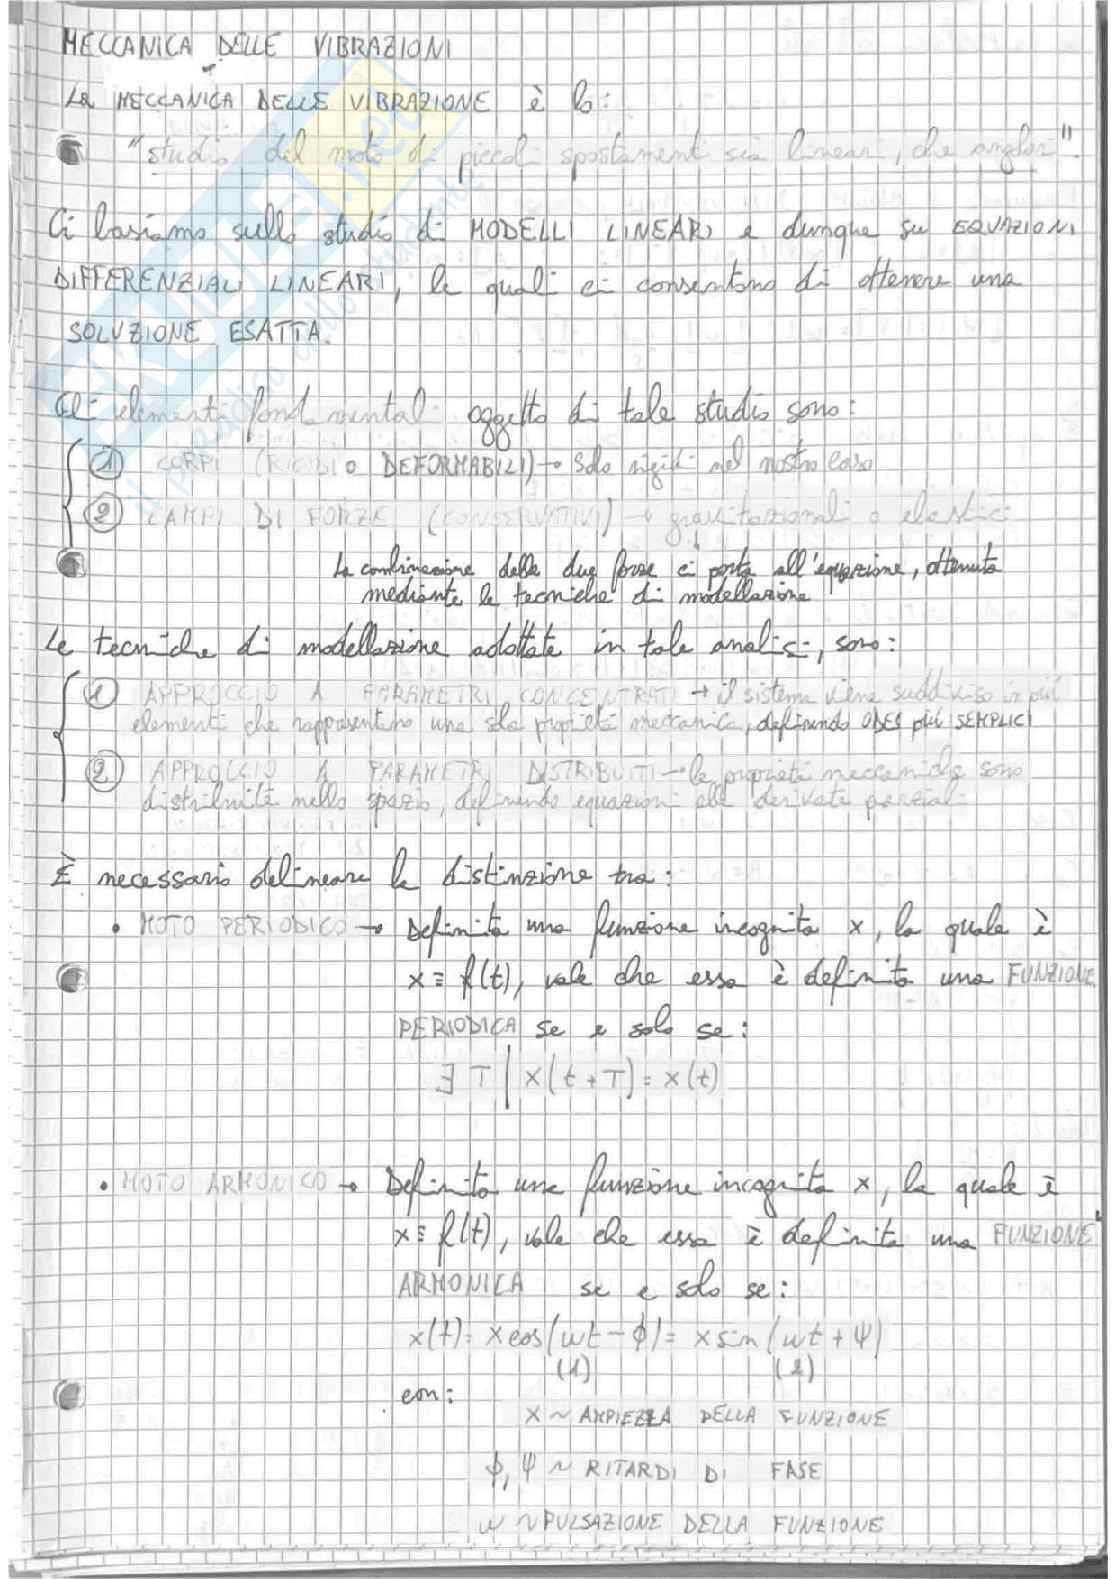 MECCANICA DELLE VIBRAZIONI
La MECCANICA DELLE VIBRAZIONE è lo:
"studio del moto di piccoli spostamenti sia lineari, che angolari".
Ci basiamo sullo studio di MODELLI LINEARI e dunque su EQUAZIONI
DIFFERENZIALI LINEARI, le quali ci consentono di ottenere una
SOLUZIONE ESATTA.
Gli elementi fondamentali oggetto di tale studio sono:
① CORPI (RIGIDI O DEFORMABILI) → solo rigidi nel nostro caso
② CAMPI DI FORZE (CONSERVATIVI) → gravitazionali o elastici
La combinazione delle due forze ci porta all'equazione, ottenuta
mediante le tecniche di modellazione
Le tecniche di modellazione adottate in tale analisi, sono:
① APPROCCIO A PARAMETRI CONCENTRATI → il sistema viene suddiviso in più
elementi che rappresentano una sola proprietà meccanica, definendo ODES più SEMPLICI
② APPROCCIO A PARAMETRI DISTRIBUITI → le proprietà meccaniche sono
distribuite nello spazio, definendo equazioni alle derivate parziali
È necessario delineare la distinzione tra:
• MOTO PERIODICO → Definita una funzione incognita x, la quale è
x ≡ f(t), vale che essa è definita una FUNZIONE
PERIODICA se e solo se:
∃ T | x(t+T) = x(t)
• MOTO ARMONICO → Definita una funzione incognita x, la quale è
x ≡ f(t), vale che essa è definita una FUNZIONE
ARMONICA se e solo se:
x(t) = x cos(ωt - ϕ) = x sin(ωt + ψ)
(1) (2)
con:
x ~ AMPIEZZA DELLA FUNZIONE
ϕ, ψ ~ RITARDI DI FASE
ω ~ PULSAZIONE DELLA FUNZIONE
SKUOLA.net
il paradiso dello studente